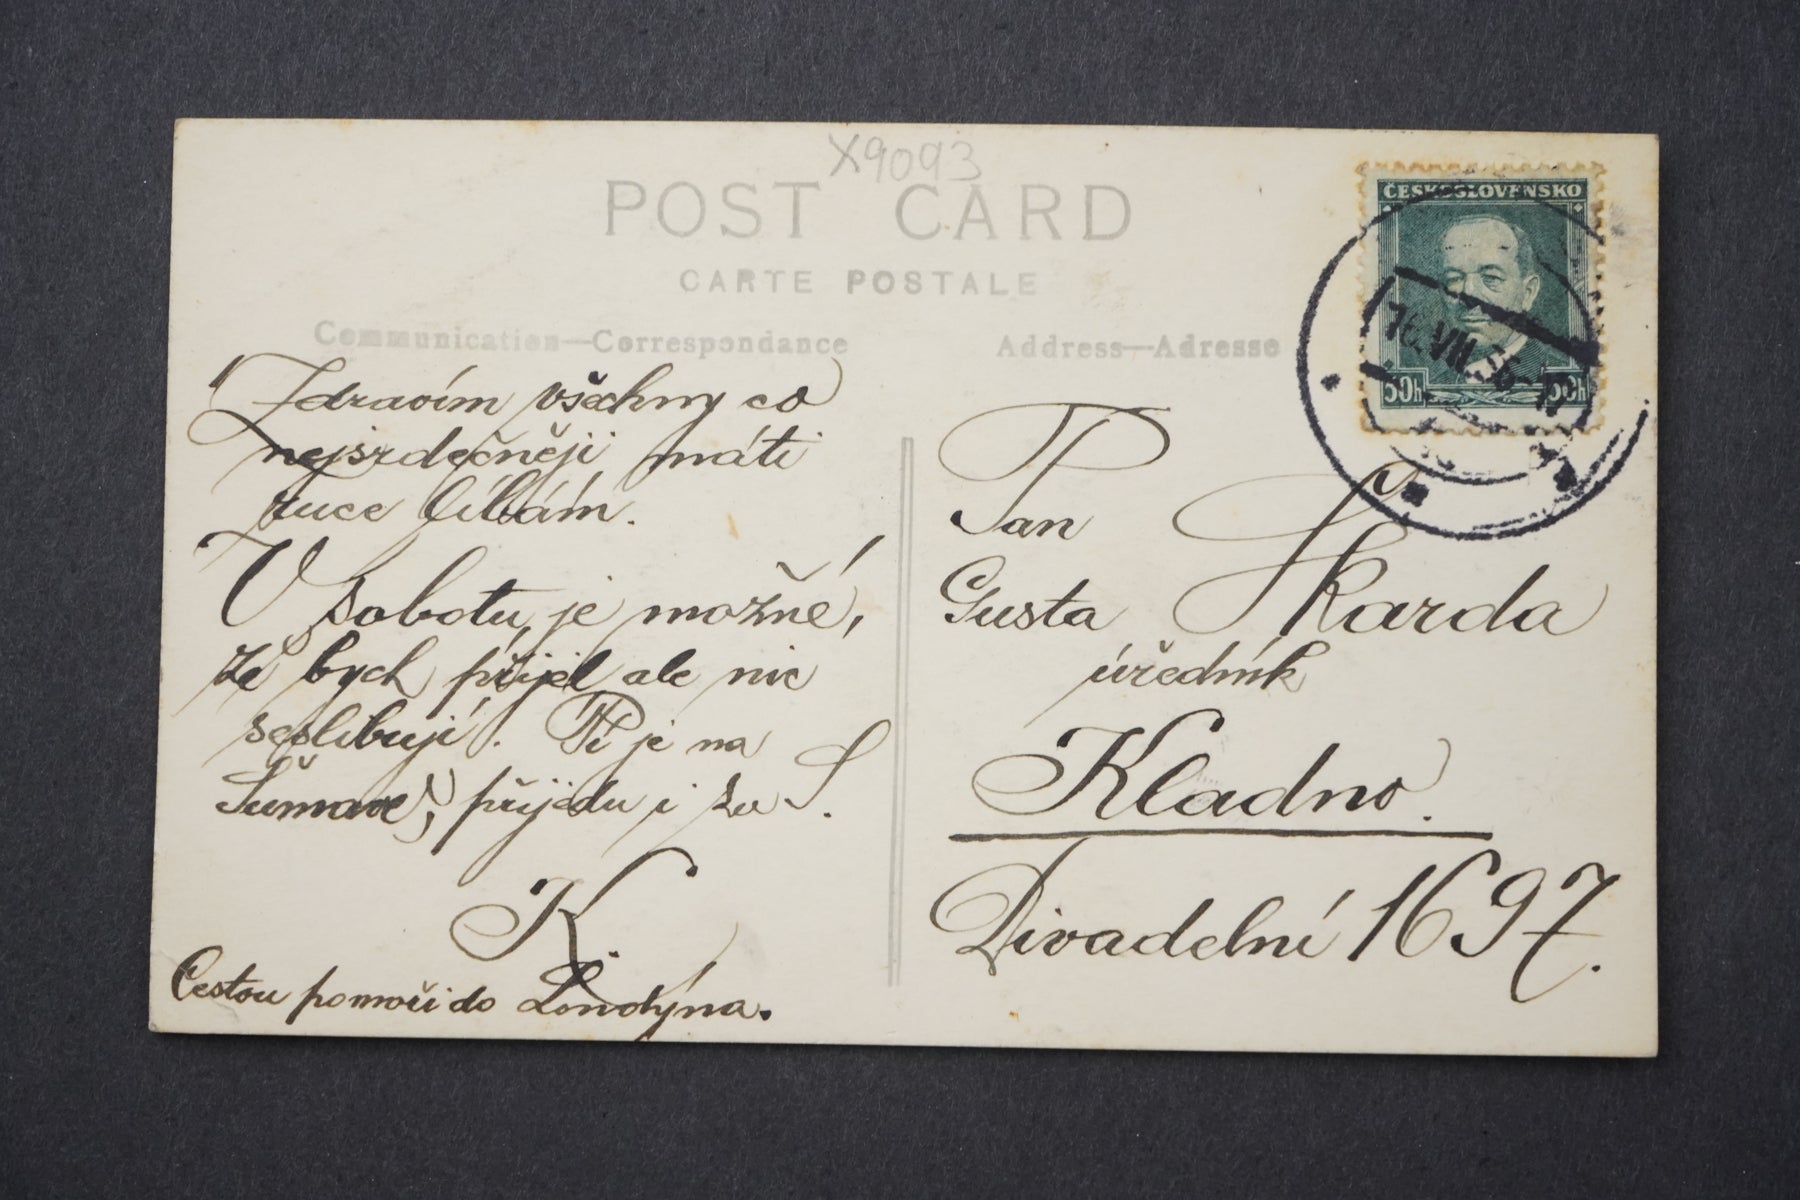 X9093
POST CARD
CARTE POSTALE
Communication—Correspondance
Address—Adresse
ČESKOSLOVENSKO
50h 50h
16.VII.36-12
Zdravím všechny co
nejsrdečněji máti
ruce líbám.
V sobotu je možné,
že bych přijel ale nic
neslibuji. je na
Šumavě, přijedu i za S.
K.
Cestou pomoři do Londýna.
Pan
Gusta Škarda
úředník
Kladno.
Divadelní 1697.